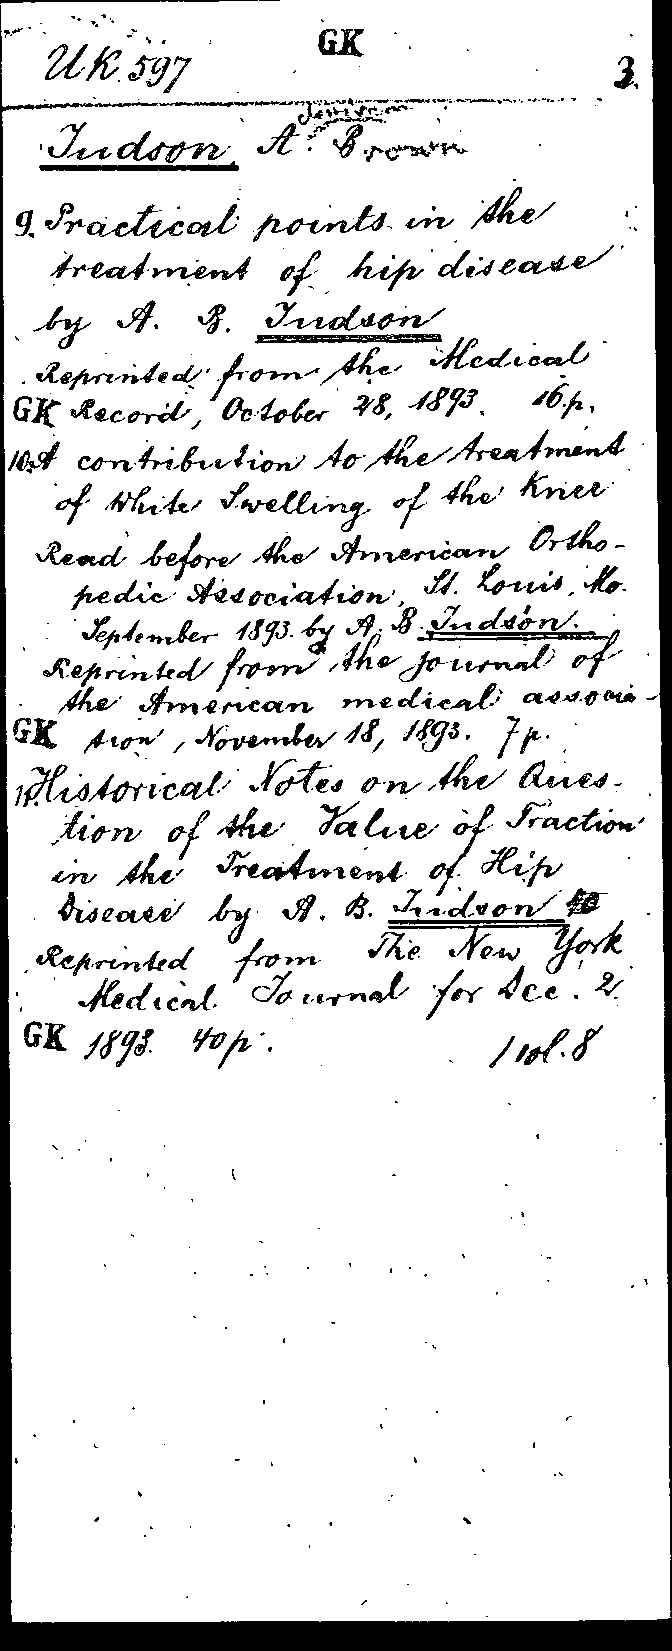 GK
UK 597 3.
Judson, A. Brown
9. Practical points in the
treatment of hip disease
by A. B. Judson
Reprinted from the Medical
GK Record, October 28, 1893. 16 p.
10. A contribution to the treatment
of White Swelling of the Knee
Read before the American Ortho-
pedic Association, St. Louis, Mo.
September 1893. by A. B. Judson.
Reprinted from the journal of
the American medical associa-
GK tion, November 18, 1893. 7 p.
11. Historical Notes on the Ques-
tion of the Value of Traction
in the Treatment of Hip
Disease by A. B. Judson
Reprinted from The New York
Medical Journal for Dec. 2.
GK 1893. 40 p.
1 vol. 8